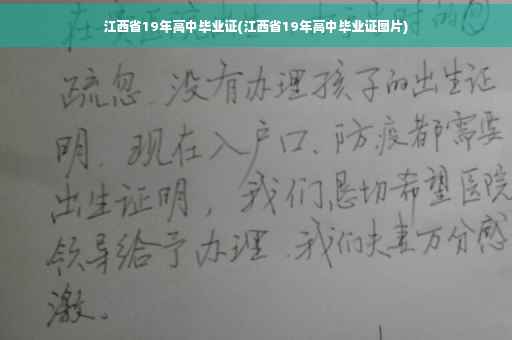 江西省19年高中毕业证(江西省19年高中毕业证图片)
疏忽、没有办理孩子的出生证
明、现在入户口、防疫都需要
出生证明，我们恳切希望医院
领导给予办理、我们夫妻万分感
激。